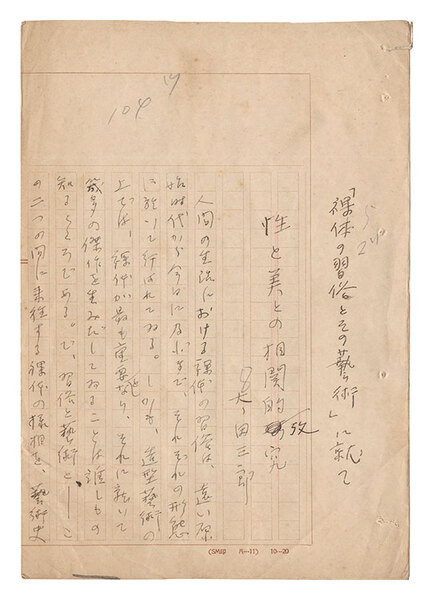 「裸体の習俗とその藝術」に就て
性と美との相関的攷究
太田三郎
人間の生活における裸体の習俗は、遠い原
始時代から今日に及ぶまで、それぞれの形態
に於いて行はれてゐる。しかも、造型藝術の
上では、裸体が最も重要なり、それに就いて
幾多の傑作を生みだしてゐることは誰しもの
知るところである。で、習俗と藝術と――こ
の二つの間に来往する裸体の様相を、藝術史
104
10—20